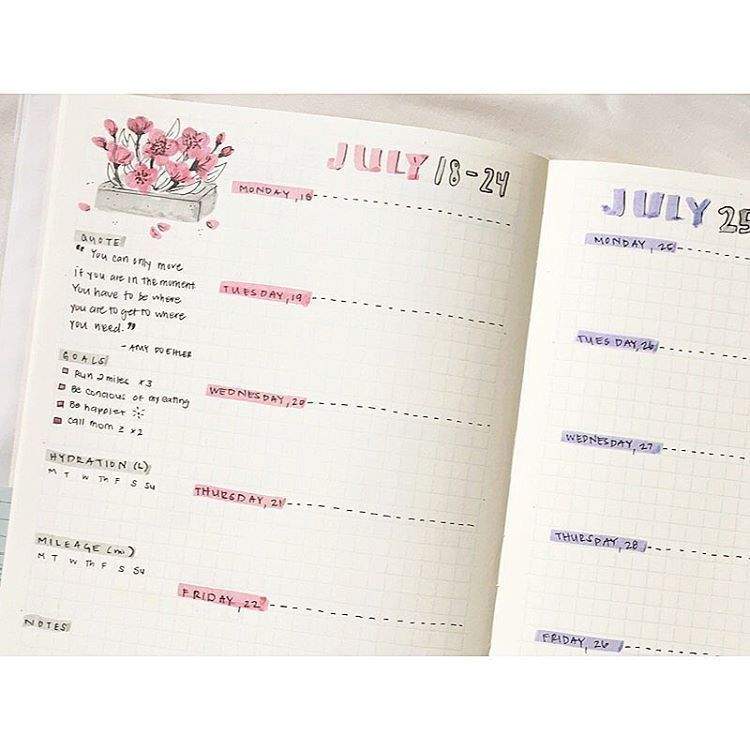 JULY 18-24
QUOTE
"You can only move
if you are in the moment
You have to be where
you are to get to where
you need."
- AMY DOEHLER
GOALS
Run 2 miles x3
Be Concious of my eating
Be happier
Call mom ≥ x2
HYDRATION (L)
M T W Th F S Su
MILEAGE (mi)
M T W Th F S Su
NOTES
MONDAY, 18
TUESDAY, 19
WEDNESDAY, 20
THURSDAY, 21
FRIDAY, 22
JULY 25
MONDAY, 25
TUESDAY, 26
WEDNESDAY, 27
THURSDAY, 28
FRIDAY, 26